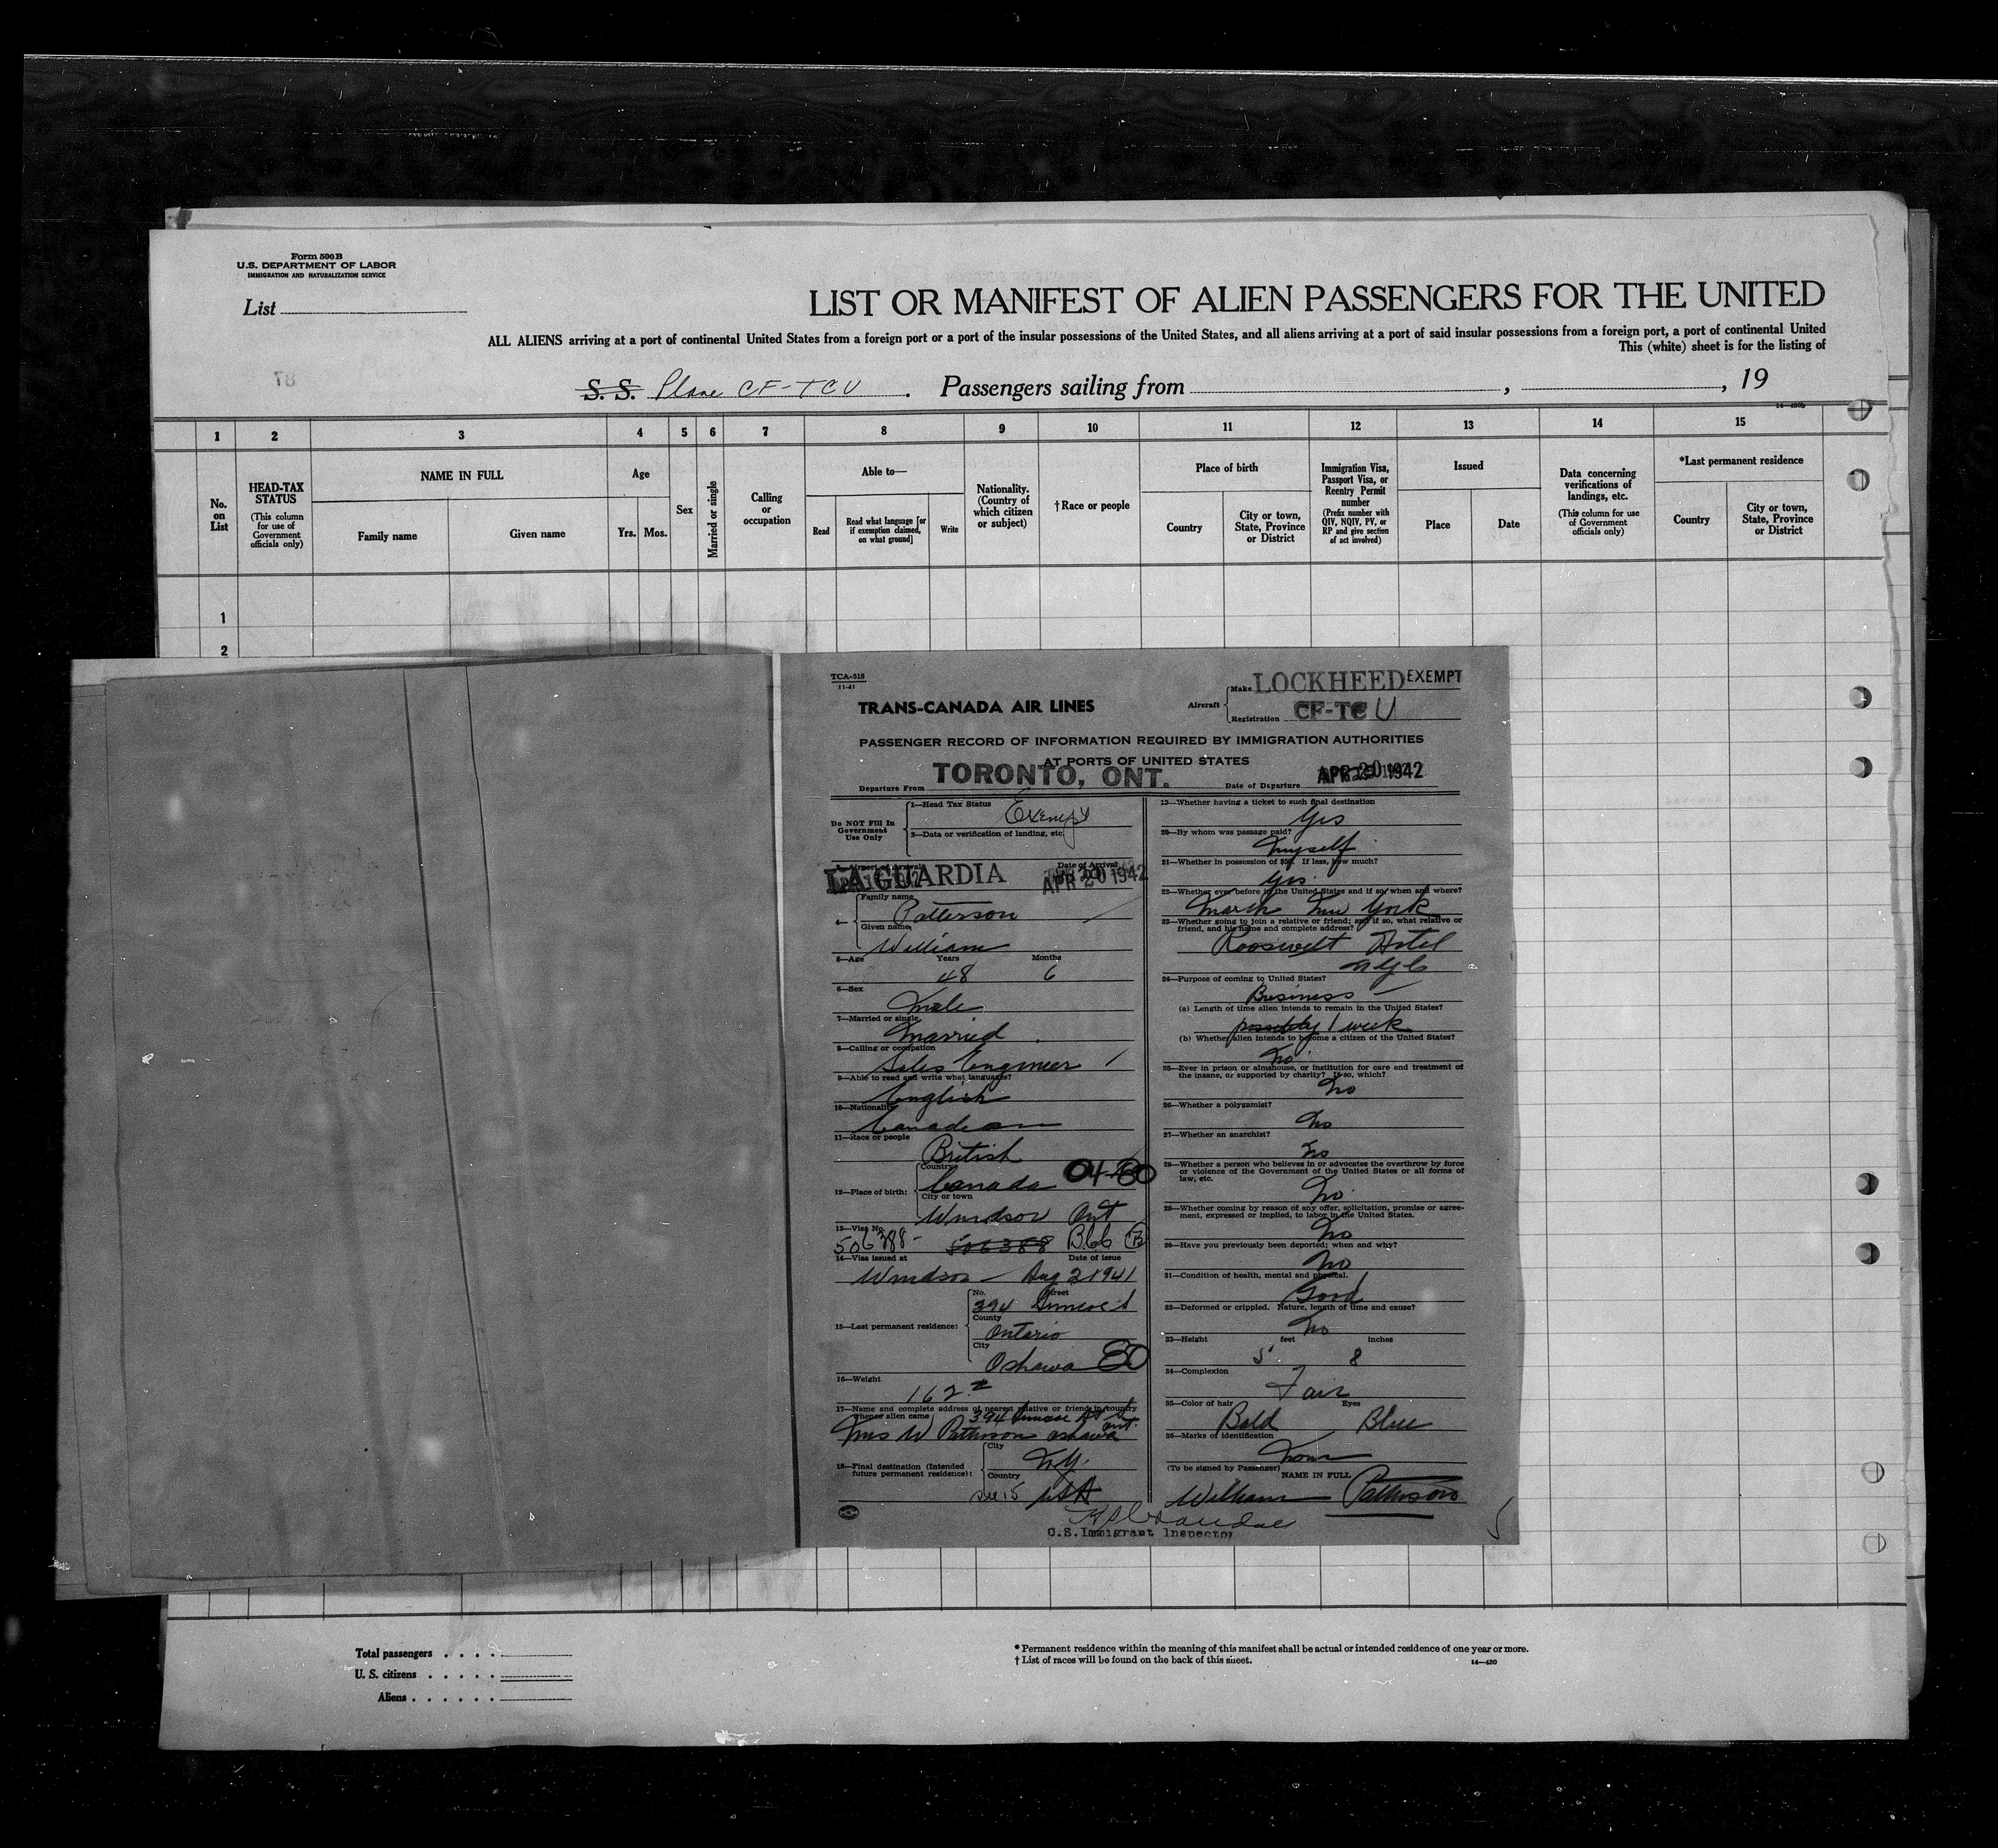 Form 500B
U.S. DEPARTMENT OF LABOR
IMMIGRATION AND NATURALIZATION SERVICE
List
LIST OR MANIFEST OF ALIEN PASSENGERS FOR THE UNITED
ALL ALIENS arriving at a port of continental United States from a foreign port or a port of the insular possessions of the United States, and all aliens arriving at a port of said insular possessions from a foreign port, a port of continental United
This (white) sheet is for the listing of
87
S. S. Plane CF-TCU. Passengers sailing from , , 19
14-430b
1 2 3 4 5 6 7 8 9 10 11 12 13 14 15
No. on List
HEAD-TAX STATUS
(This column for use of Government officials only)
NAME IN FULL
Family name
Given name
Age
Yrs. Mos.
Sex
Married or single
Calling or occupation
Able to—
Read
Read what language [or if exemption claimed, on what ground]
Write
Nationality. (Country of which citizen or subject)
†Race or people
Place of birth
Country
City or town, State, Province or District
Immigration Visa, Passport Visa, or Reentry Permit number
(Prefix number with QIV, NQIV, PV, or RP and give section of act involved)
Issued
Place
Date
Data concerning verifications of landings, etc.
(This column for use of Government officials only)
*Last permanent residence
Country
City or town, State, Province or District
1
2
TCA-518
11-41
TRANS-CANADA AIR LINES
Aircraft
Make LOCKHEED EXEMPT
Registration CF-TCU
PASSENGER RECORD OF INFORMATION REQUIRED BY IMMIGRATION AUTHORITIES
AT PORTS OF UNITED STATES
Departure From TORONTO, ONT.
Date of Departure APR 20 1942
Do NOT Fill In
Government
Use Only
1—Head Tax Status Exempt
2—Data or verification of landing, etc.
3—Airport of Arrival LA GUARDIA
Date of Arrival APR 20 1942
4—
Family name Patterson
Given name William
5—Age Years 48 Months 6
6—Sex Male
7—Married or single Married
8—Calling or occupation Sales Engineer
9—Able to read and write what languages? English
10—Nationality Canadian
11—Race or people British
12—Place of birth: Country Canada 04-80
City or town Windsor Ont
13—Visa No. 506388- 506388 B66 B
14—Visa issued at Windsor Date of issue Aug 2 1941
15—Last permanent residence:
No. Street 394
County Ontario
City Oshawa 80
16—Weight 162 #
17—Name and complete address of nearest relative or friend in country
whence alien came 394
Mrs W Patterson Oshawa Ont.
18—Final destination (Intended
future permanent residence):
City N.Y.
Country see 15 USA
19—Whether having a ticket to such final destination
Yes
20—By whom was passage paid?
Myself
21—Whether in possession of $50. If less, how much?
Yes
22—Whether ever before in the United States and if so, when and where?
March New York
23—Whether going to join a relative or friend; and if so, what relative or
friend, and his name and complete address?
Roosevelt Hotel
NYC
24—Purpose of coming to United States?
Business
(a) Length of time alien intends to remain in the United States?
possibly 1 week
(b) Whether alien intends to become a citizen of the United States?
No
25—Ever in prison or almshouse, or institution for care and treatment of
the insane, or supported by charity? If so, which?
No
26—Whether a polygamist?
No
27—Whether an anarchist?
No
28—Whether a person who believes in or advocates the overthrow by force
or violence of the Government of the United States or all forms of
law, etc.
No
29—Whether coming by reason of any offer, solicitation, promise or agree-
ment, expressed or implied, to labor in the United States.
No
30—Have you previously been deported; when and why?
No
31—Condition of health, mental and physical.
Good
32—Deformed or crippled. Nature, length of time and cause?
No
33—Height feet inches
5' 8
34—Complexion
Fair
35—Color of hair Eyes
Bald Blue
36—Marks of identification
None
(To be signed by Passenger)
NAME IN FULL
William Patterson
U.S. Immigrant Inspector
Total passengers
U. S. citizens
Aliens
* Permanent residence within the meaning of this manifest shall be actual or intended residence of one year or more.
† List of races will be found on the back of this sheet.
14—430